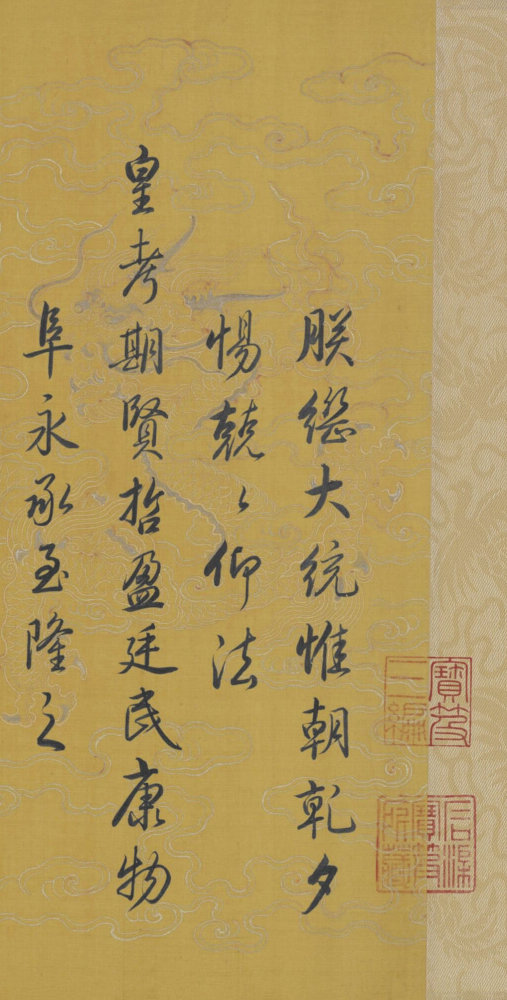 朕繼大統惟朝乾夕
惕兢〻仰法
皇考期賢哲盈廷民康物
阜永承至隆之
寶笈
三編
石渠
寶笈
所藏